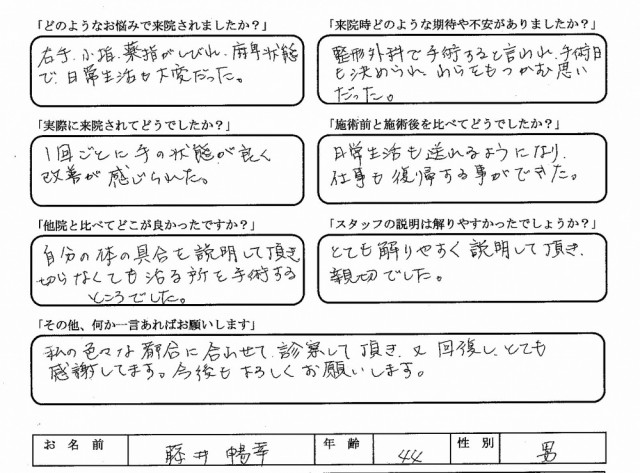 「どのようなお悩みで来院されましたか？」
右手、小指、薬指がしびれ、麻卑状態
で、日常生活も大変だった。
「来院時どのような期待や不安がありましたか？」
整形外科で手術すると言われ、手術日
も決められ、わらをもつかむ思い
だった。
「実際に来院されてどうでしたか？」
1回ごとに手の状態が良く
改善が感じられた。
「施術前と施術後を比べてどうでしたか？」
日常生活も送れるようになり、
仕事も復帰する事ができた。
「他院と比べてどこが良かったですか？」
自分の体の具合を説明して頂き
切らなくても治る所を手術する
ところでした。
「スタッフの説明は解りやすかったでしょうか？」
とても解りやすく説明して頂き、
親切でした。
「その他、何か一言あればお願いします」
私の色々な都合に合わせて、診察して頂き、又回復し、とても
感謝してます。今後もよろしくお願いします。
お名前 藤井 暢幸 年齢 44 性別 男